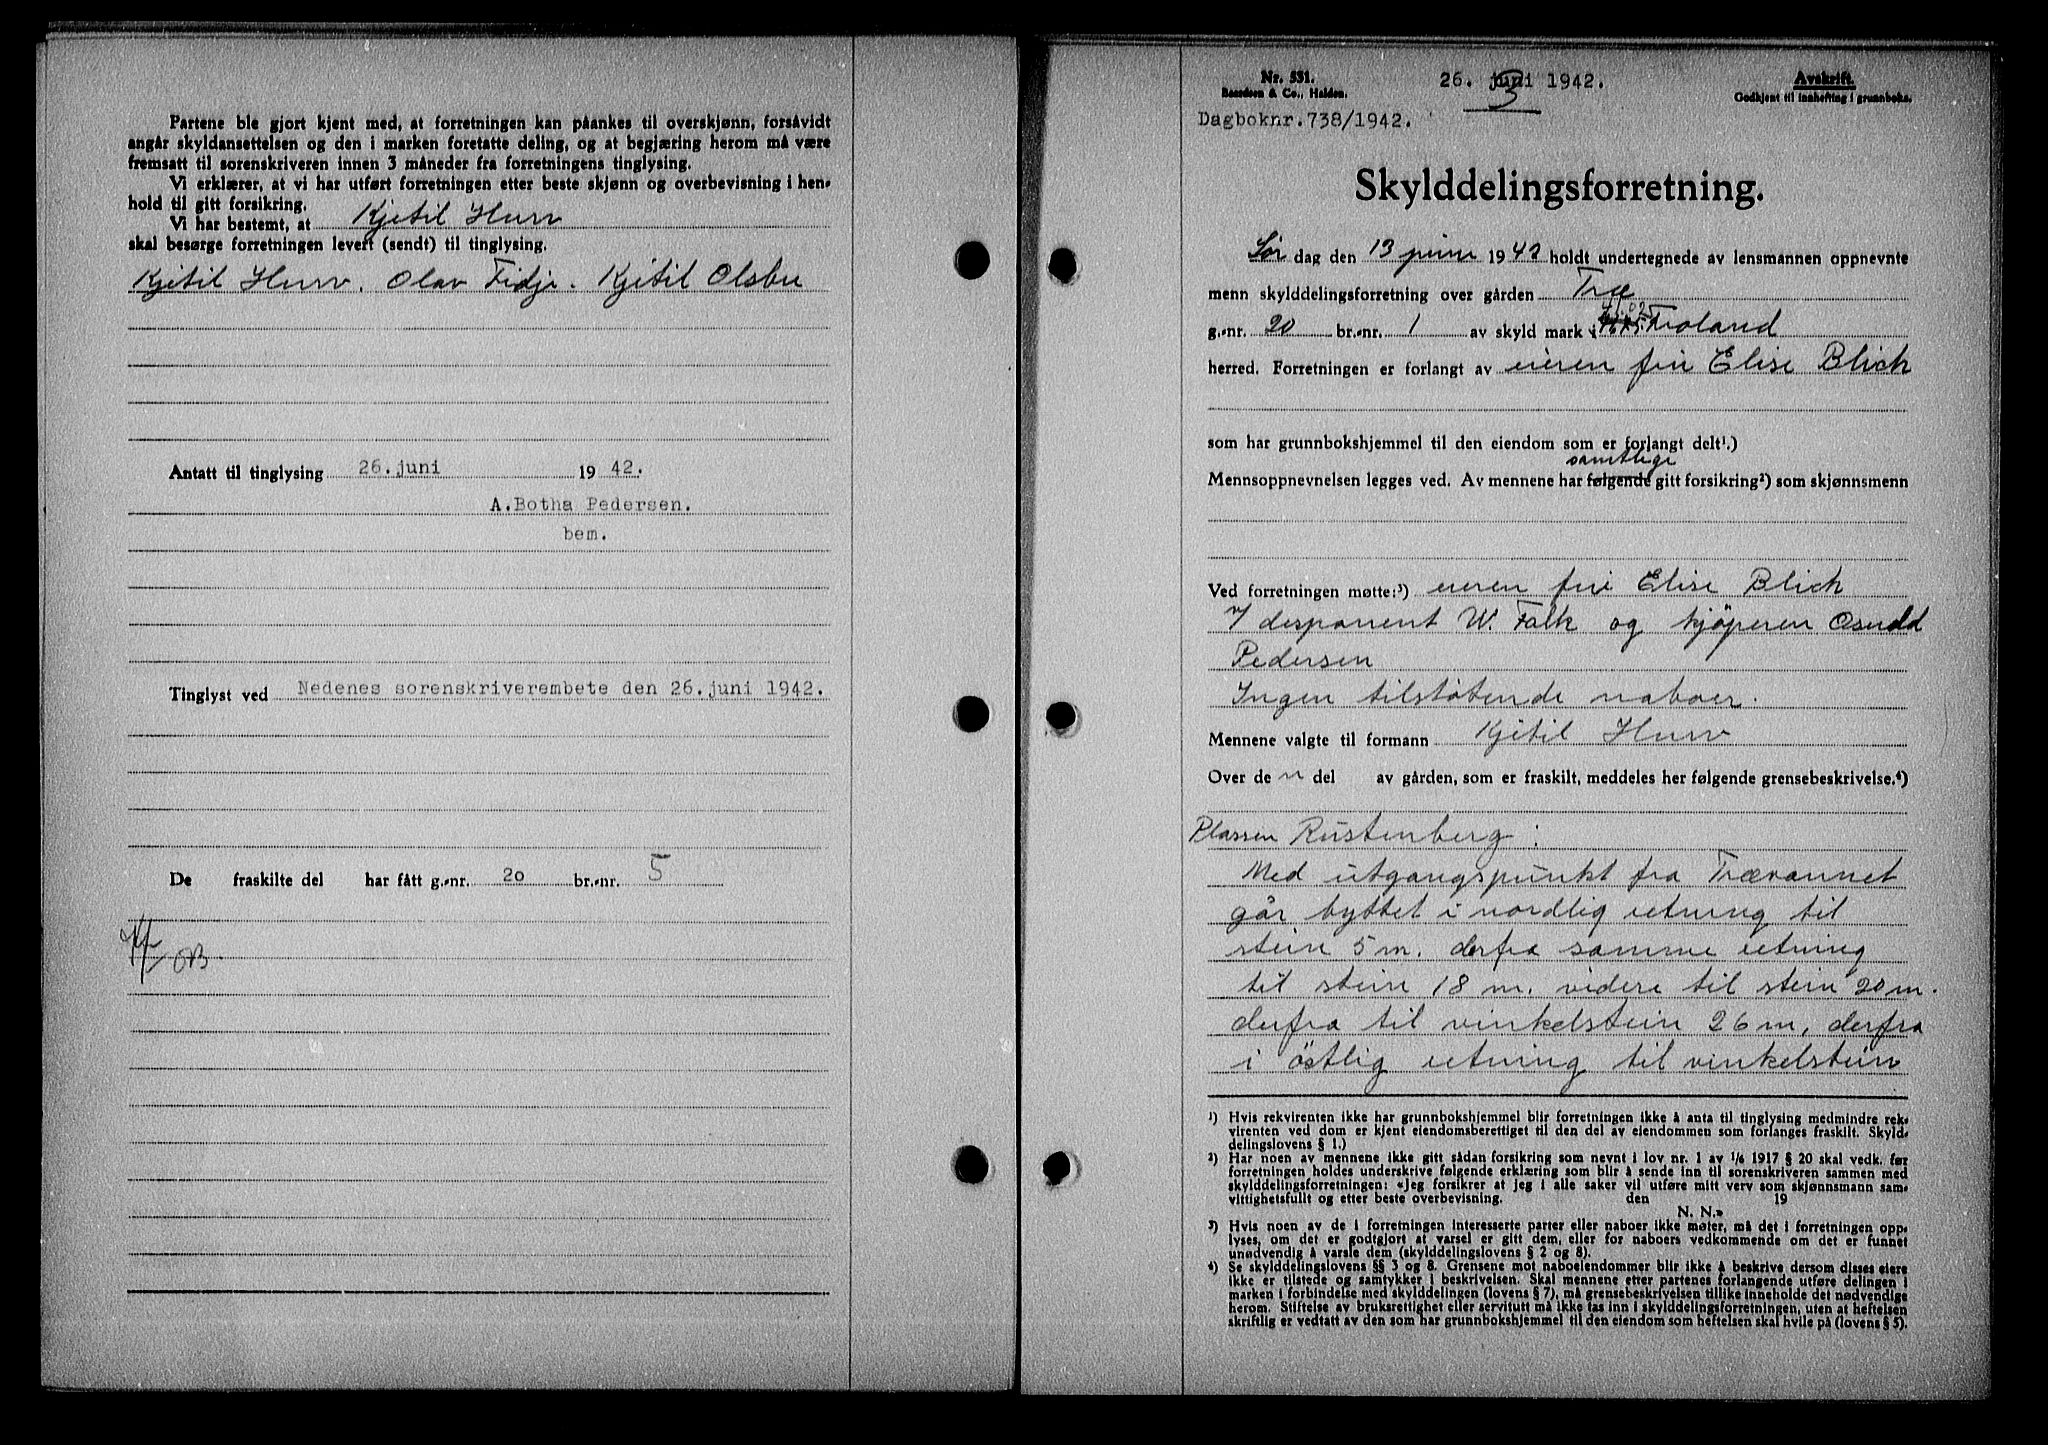 Partene ble gjort kjent med, at forretningen kan påankes til overskjønn, forsåvidt
angår skyldansettelsen og den i marken foretatte deling, og at begjæring herom må være
fremsatt til sorenskriveren innen 3 måneder fra forretningens tinglysing.
Vi erklærer, at vi har utført forretningen etter beste skjønn og overbevisning i hen-
hold til gitt forsikring.
Vi har bestemt, at Kjetil Hurv
skal besørge forretningen levert (sendt) til tinglysing.
Kjetil Hurv. Olav Fidje. Kjetil Olsbu
Antatt til tinglysing 26. juni 1942.
A. Botha Pedersen.
bem.
Tinglyst ved Nedenes sorenskriverembete den 26. juni 1942.
De fraskilte del har fått g.-nr. 20 br.-nr. 5
OB.
Nr. 531.
& Co., Halden.
26. juni 1942.
3
Avskrift.
Godkjent til innhefting i grunnboka.
Dagboknr. 738/1942.
Skylddelingsforretning.
Lør dag den 13 juni 1942 holdt undertegnede av lensmannen oppnevnte
menn skylddelingsforretning over gården Træ
g.-nr. 20 br.-nr. 1 av skyld mark i Froland
herred. Forretningen er forlangt av eieren fru Elise Blich
som har grunnbokshjemmel til den eiendom som er forlangt delt¹.)
samtlige
Mennsoppnevnelsen legges ved. Av mennene har følgende gitt forsikring²) som skjønnsmenn
Ved forretningen møtte:³) eieren fru Elise Blich
v/ disponent W. Falk og kjøperen Osuld
Pedersen
Ingen tilstøtende naboer.
Mennene valgte til formann Kjetil Hurv
Over de n del av gården, som er fraskilt, meddeles her følgende grensebeskrivelse.⁴)
Plassen Rustenberg:
Med utgangspunkt fra Trævannet
går byttet i nordlig retning til
stein 5 m. derfra samme retning
til stein 18 m. videre til stein 20 m.
derfra til vinkelstein 26 m, derfra
i östlig retning til vinkelstein
¹) Hvis rekvirenten ikke har grunnbokshjemmel blir forretningen ikke å anta til tinglysing medmindre rek-
virenten ved dom er kjent eiendomsberettiget til den del av eiendommen som forlanges fraskilt. Skyld-
delingslovens § 1.)
²) Har noen av mennene ikke gitt sådan forsikring som nevnt i lov nr. 1 av 1/6 1917 § 20 skal vedk. før
forretningen holdes underskrive følgende erklæring som blir å sende inn til sorenskriveren sammen med
skylddelingsforretningen: «Jeg forsikrer at jeg i alle saker vil utføre mitt verv som skjønnsmann sam-
vittighetsfullt og etter beste overbevisning. den 19
N. N.»
³) Hvis noen av de i forretningen interesserte parter eller naboer ikke møter, må det i forretningen opp-
lyses, om det er godtgjort at varsel er gitt dem, eller for naboers vedkommende om det er funnet
unødvendig å varsle dem (skylddelingslovens § 2 og 8).
⁴) Se skylddelingslovens §§ 3 og 8. Grensene mot naboeiendommer blir ikke å beskrive dersom disses eiere
ikke er tilstede og samtykker i beskrivelsen. Skal mennene etter partenes forlangende utføre delingen i
marken i forbindelse med skylddelingen (lovens § 7), må grensebeskrivelsen tillike inneholde det nødvendige
herom. Stiftelse av bruksrettighet eller servitutt må ikke tas inn i skylddelingsforretningen, uten at heftelsen
skriftlig er vedtatt av den som har grunnbokshjemmel til den eiendom som heftelsen skal hvile på (lovens § 5).